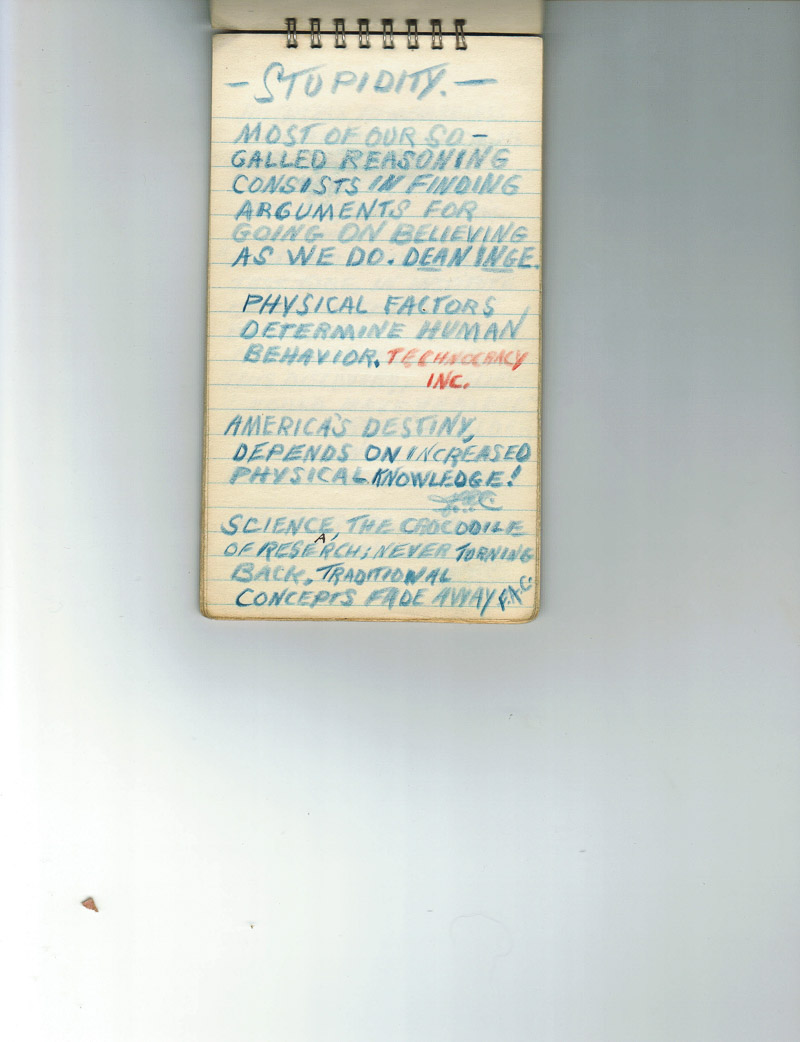 - STUPIDITY. -
MOST OF OUR SO-
GALLED REASONING
CONSISTS IN FINDING
ARGUMENTS FOR
GOING ON BELIEVING
AS WE DO. DEAN INGE.
PHYSICAL FACTORS
DETERMINE HUMAN
BEHAVIOR. TECHNOCRACY
INC.
AMERICA'S DESTINY,
DEPENDS ON INCREASED
PHYSICAL KNOWLEDGE!
SCIENCE, THE CROCODILE
OF RESEARCH; NEVER TORNING
BACK. TRADITIONAL
CONCEPTS FADE AWAY F.A.C.